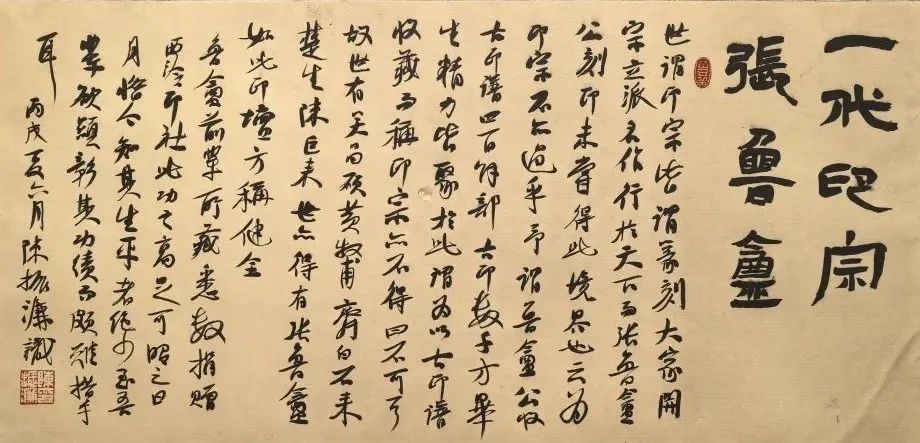 一代印宗
張魯盦
世謂印宗皆謂篆刻大家開
宗立派名作行於天下而張魯盦
公刻印未嘗得此境界也云為
印宗不亦過乎予謂魯盦公收
古印譜四百餘部古印數千方畢
生精力皆聚於此謂為以古印譜
收藏而稱印宗亦不得曰不可耳
故世有吴昌碩黄牧甫齊白石来
楚生陳巨来世亦得有張魯盦
如此印壇方稱健全
魯盦前輩所藏悉數捐贈
西泠印社此功之高足可昭之日
月惜今知其生平者絕少至吾
輩欲顯彰其功績而頗難措手
耳 丙戌夏六月陳振濂識